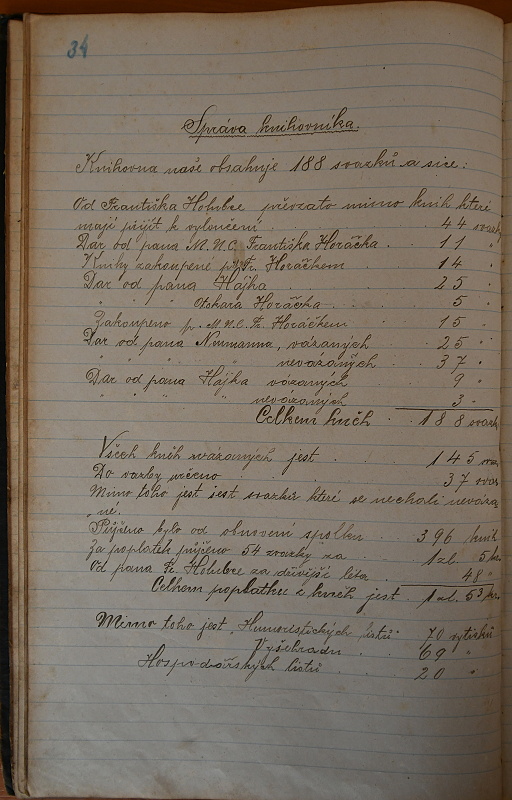 34
Správa knihovníka.
Knihovna naše obsahuje 188 svazků a sice:
Od Františka Holubce převzato mimo knih které
mají přijít k vyloučení . . . 44 svazk
Dar od pana M.U.C. Františka Horáčka . 11 "
Knihy zakoupené p. Fr. Horáčkem . 14 "
Dar od pana Hájka . . . 25 "
" " " Otokara Horáčka . . 5 "
Zakoupeno p. M.U.C. Fr. Horáčkem . 15 "
Dar od pana Neumanna, vázaných . 25 "
" " " " nevázaných . 37 "
Dar od pana Hájka vázaných . 9 "
" " " " nevázaných . 3 "
Celkem knih . . 188 svazk
Všech kněh vázaných jest . . . 145 svaz
Do vazby určeno . . . 37 svaz
Mimo toho jest šest svazků které se nechali nevázá
ne.
Půjčeno bylo od obnovení spolku . 396 knih
Za poplatek půjčeno 54 svazky za . 1 zl. 5 kr.
Od pana Fr. Holubce za dřívější léta . 48 "
Celkem poplatku z kněh jest . 1 zl. 53 kr.
Mimo toho jest „Humoristických listů" 70 výtisků
Vyšehradu . . 69 "
Hospodářských listů . . 20 "